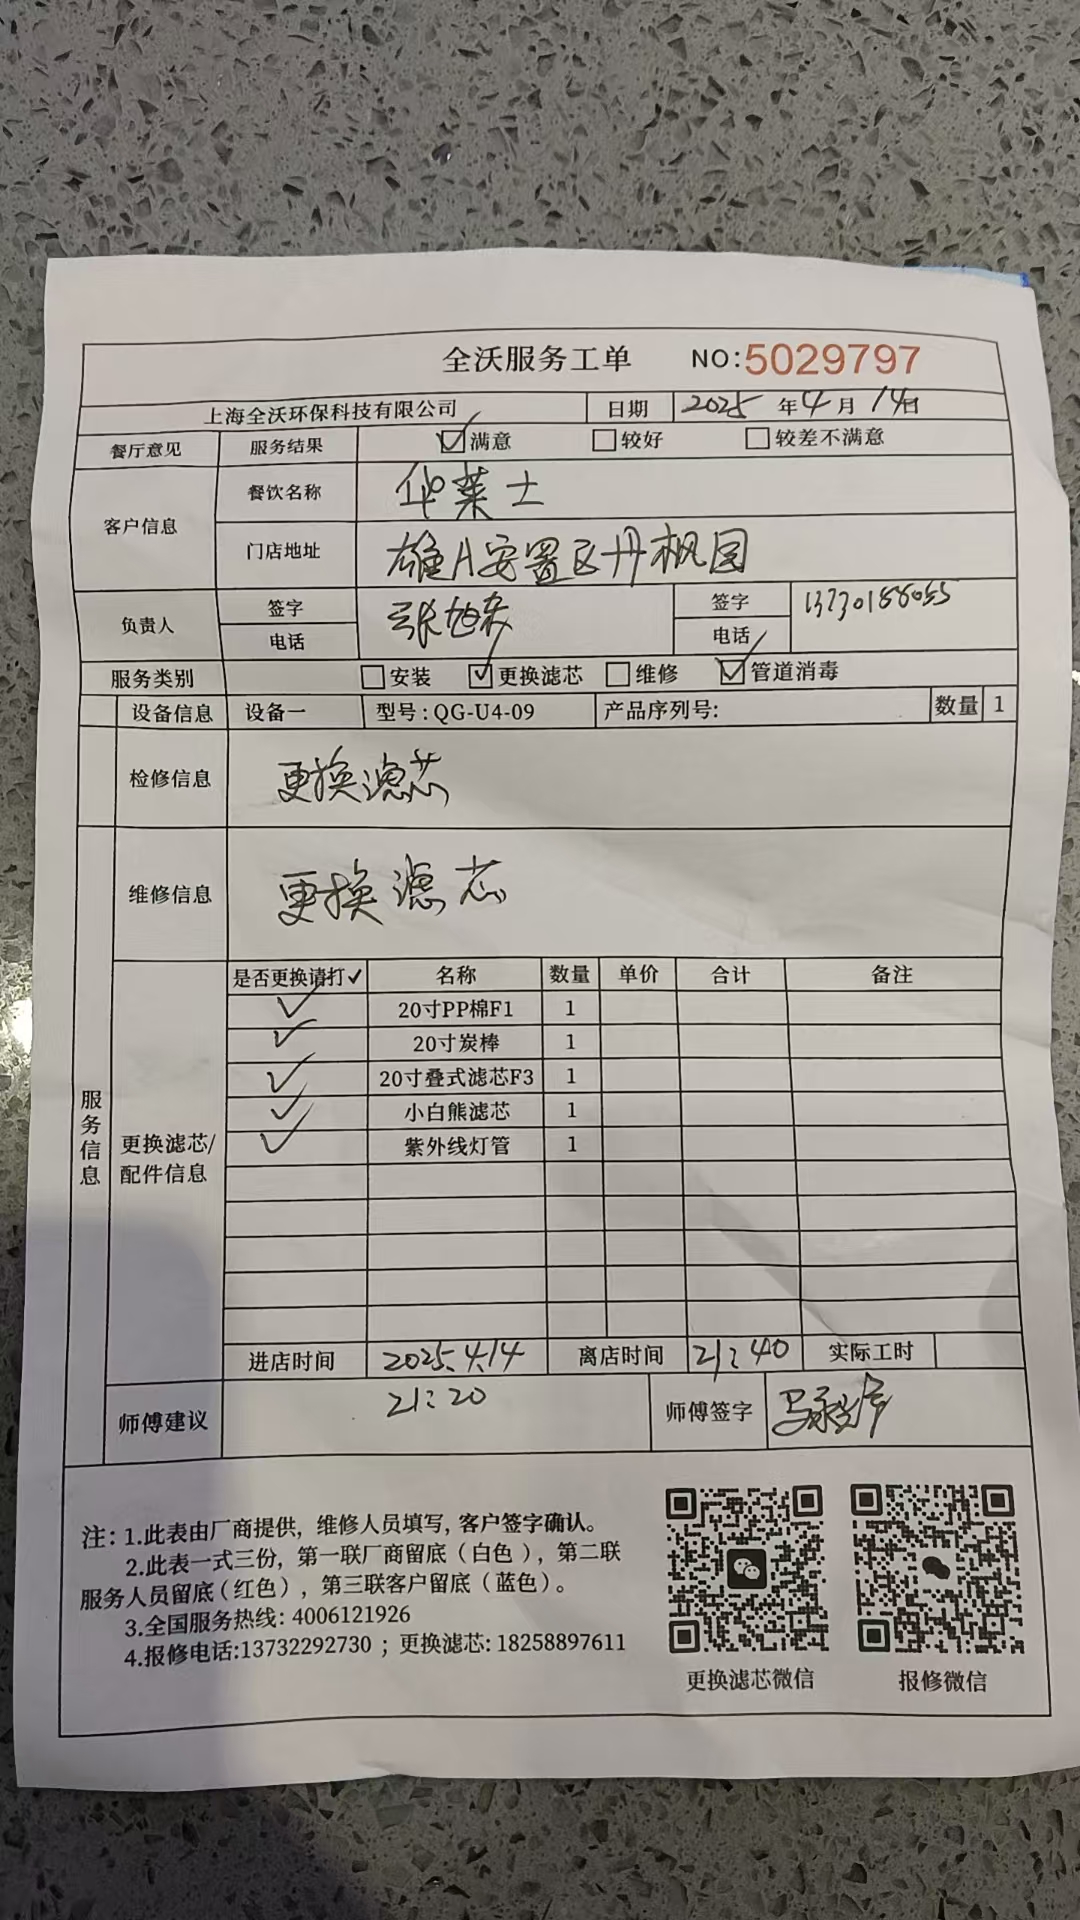 全沃服务工单 NO:5029797
上海全沃环保科技有限公司 日期 2025年4月14日
餐厅意见 服务结果 ☑满意 ☐较好 ☐较差不满意
客户信息 餐饮名称 华莱士
门店地址 雄A安置区丹枫园
负责人 签字 张旭东 签字 13730188055
电话 电话
服务类别 ☐安装 ☑更换滤芯 ☐维修 ☑管道消毒
设备信息 设备一 型号:QG-U4-09 产品序列号: 数量 1
检修信息 更换滤芯
维修信息 更换滤芯
服务信息
更换滤芯/配件信息
是否更换请打✓ 名称 数量 单价 合计 备注
✓ 20寸PP棉F1 1
✓ 20寸炭棒 1
✓ 20寸叠式滤芯F3 1
✓ 小白熊滤芯 1
✓ 紫外线灯管 1
进店时间 2025.4.14 离店时间 21:40 实际工时
21:20
师傅建议 师傅签字
注: 1.此表由厂商提供, 维修人员填写, 客户签字确认。
2.此表一式三份, 第一联厂商留底(白色), 第二联
服务人员留底(红色), 第三联客户留底(蓝色)。
3.全国服务热线: 4006121926
4.报修电话:13732292730 ; 更换滤芯: 18258897611
更换滤芯微信 报修微信